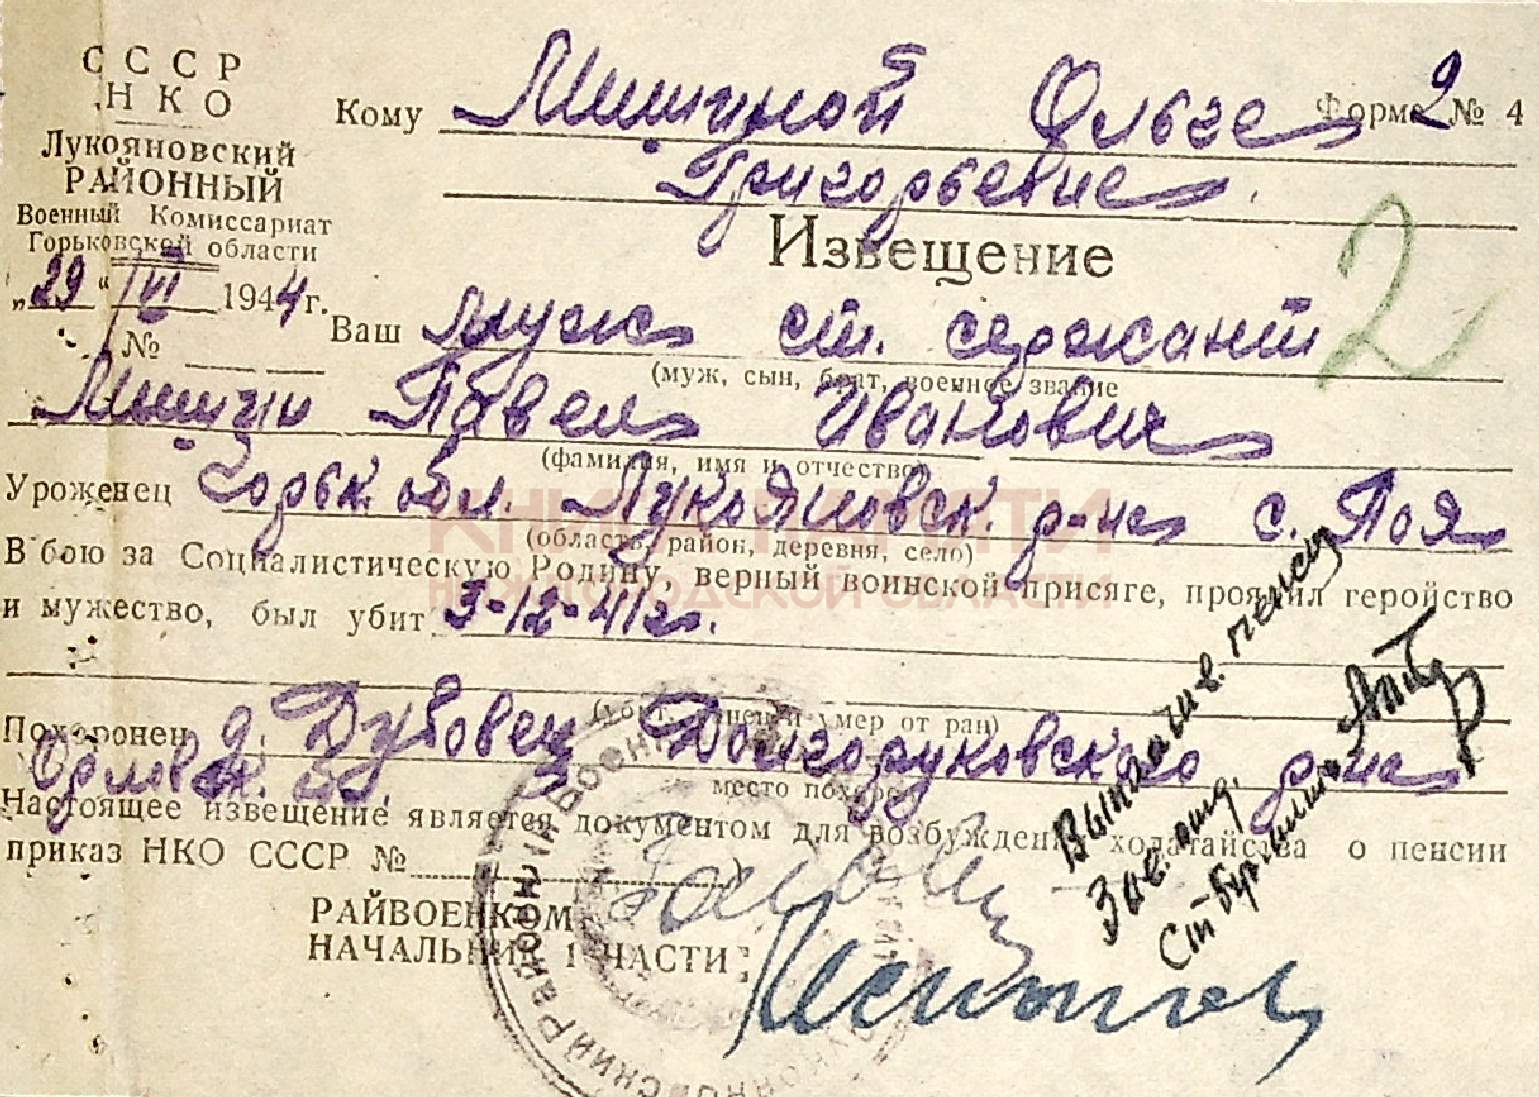 СССР
НКО
Лукояновский
РАЙОННЫЙ
Военный Комиссариат
Горьковской области
„29“ VI 1944 г.
№
Форма № 4
2
Кому Мишиной Ольге
Григорьевне
Извещение
2
Ваш муж ст. сержант
(муж, сын, брат, военное звание
Мишин Павел Иванович
(фамилия, имя и отчество)
Уроженец Горьк. обл. Лукояновск. р-на с. Поя
(область, район, деревня, село)
В бою за Социалистическую Родину, верный воинской присяге, проявил геройство
и мужество, был убит 3-12-41 г.
(убит, ранен и умер от ран)
Похоронен д. Дубовец Долгоруковского р-на
Орловск. обл.
место похорон
Настоящее извещение является документом для возбуждения ходатайства о пенсии
приказ НКО СССР №
РАЙВОЕНКОМ
НАЧАЛЬНИК 1 ЧАСТИ:
КНИГА ПАМЯТИ
НИЖЕГОРОДСКОЙ ОБЛАСТИ